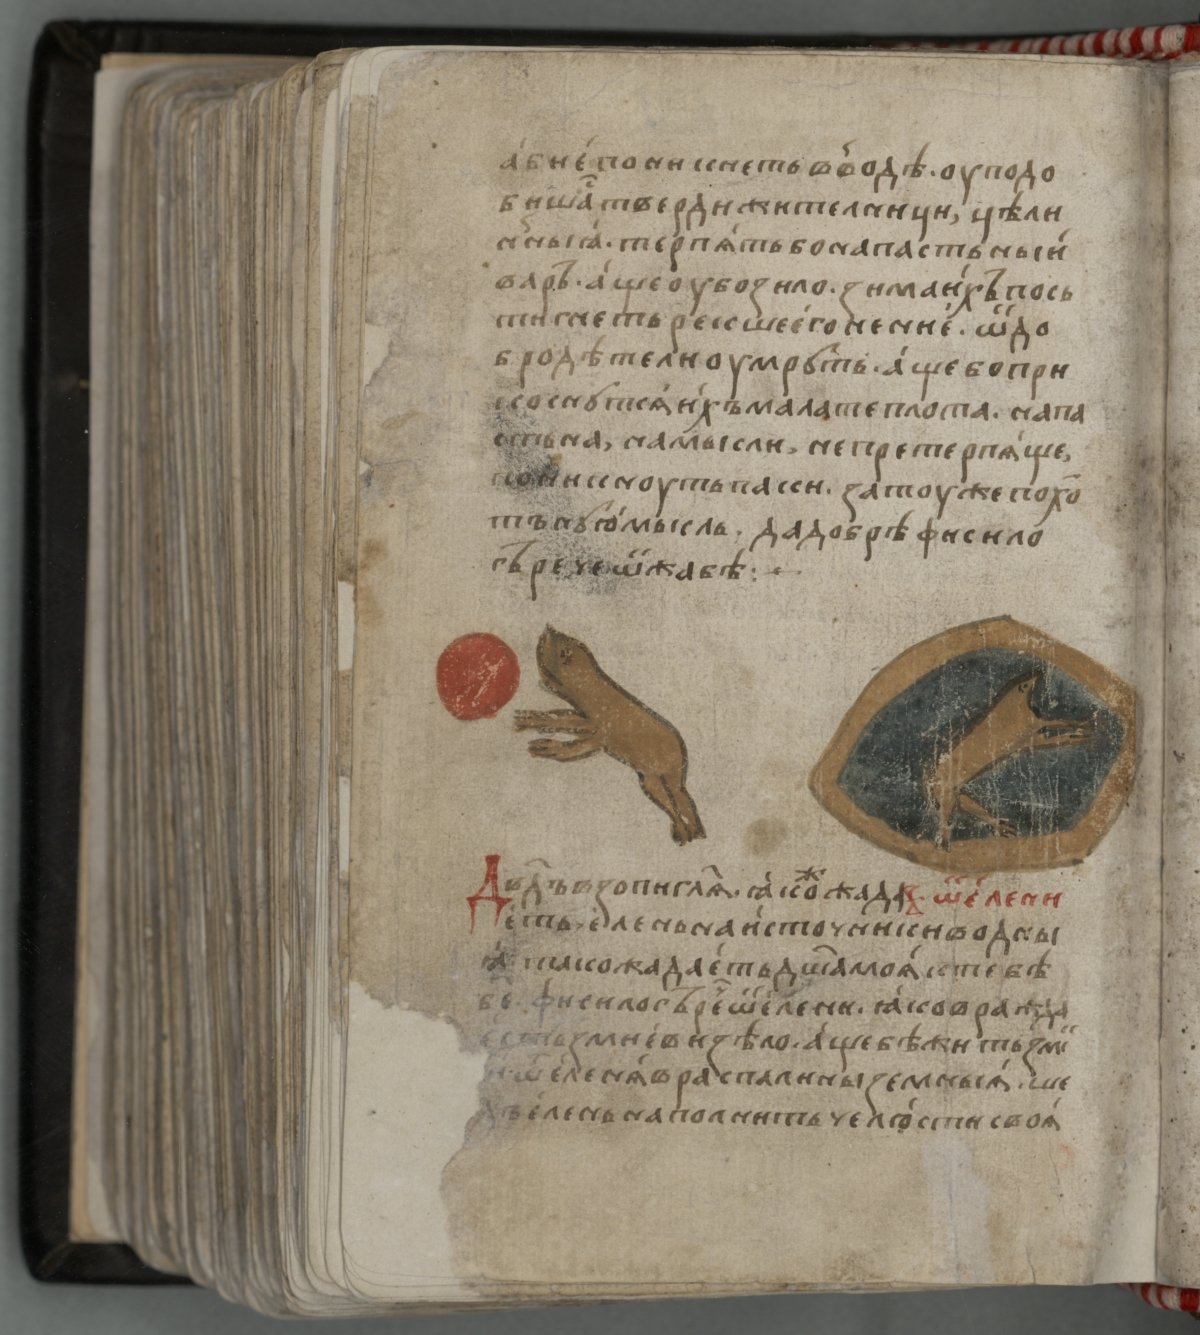 а́бие́ поникнеть въ водѣ. оуподо
бишѧ твердии жителнии, цѣли
чныѧ́. терпѧ́ть бо напастьныи́
варъ. а́ще оубо зило. зима и́хъ пось
тигнеть рекшее́ гонение́. ѿ до
бродѣтели оумрꙋть. а́ще бо при
коснꙋтсѧ и́хъ мала теплота. напа
стьна, на мысли, не претерпѧ́ще,
поникноуть пакы. за тоуже похо
тънꙋю́ мысль. да добрѣ фисило
гъ рече ѿ жабѣ :~
Дв҃дъ въпи гл҃ѧ. ꙗ́коже жада з҃ ѿ е́лени
е́ть е́лень на и́сточники водны
ꙗ́ тако жадае́ть дш҃а моѧ́ к тебѣ
бе҃. фисилогъ рече́ ѿ е́лени. ꙗ́ко вражда
е́сть змие́ви зѣло. а́ще бѣжить змиі
ѿ е́ленѧ́ в распалины земныѧ́. ше
дъ е́лень наполнить челю́сти своѧ́